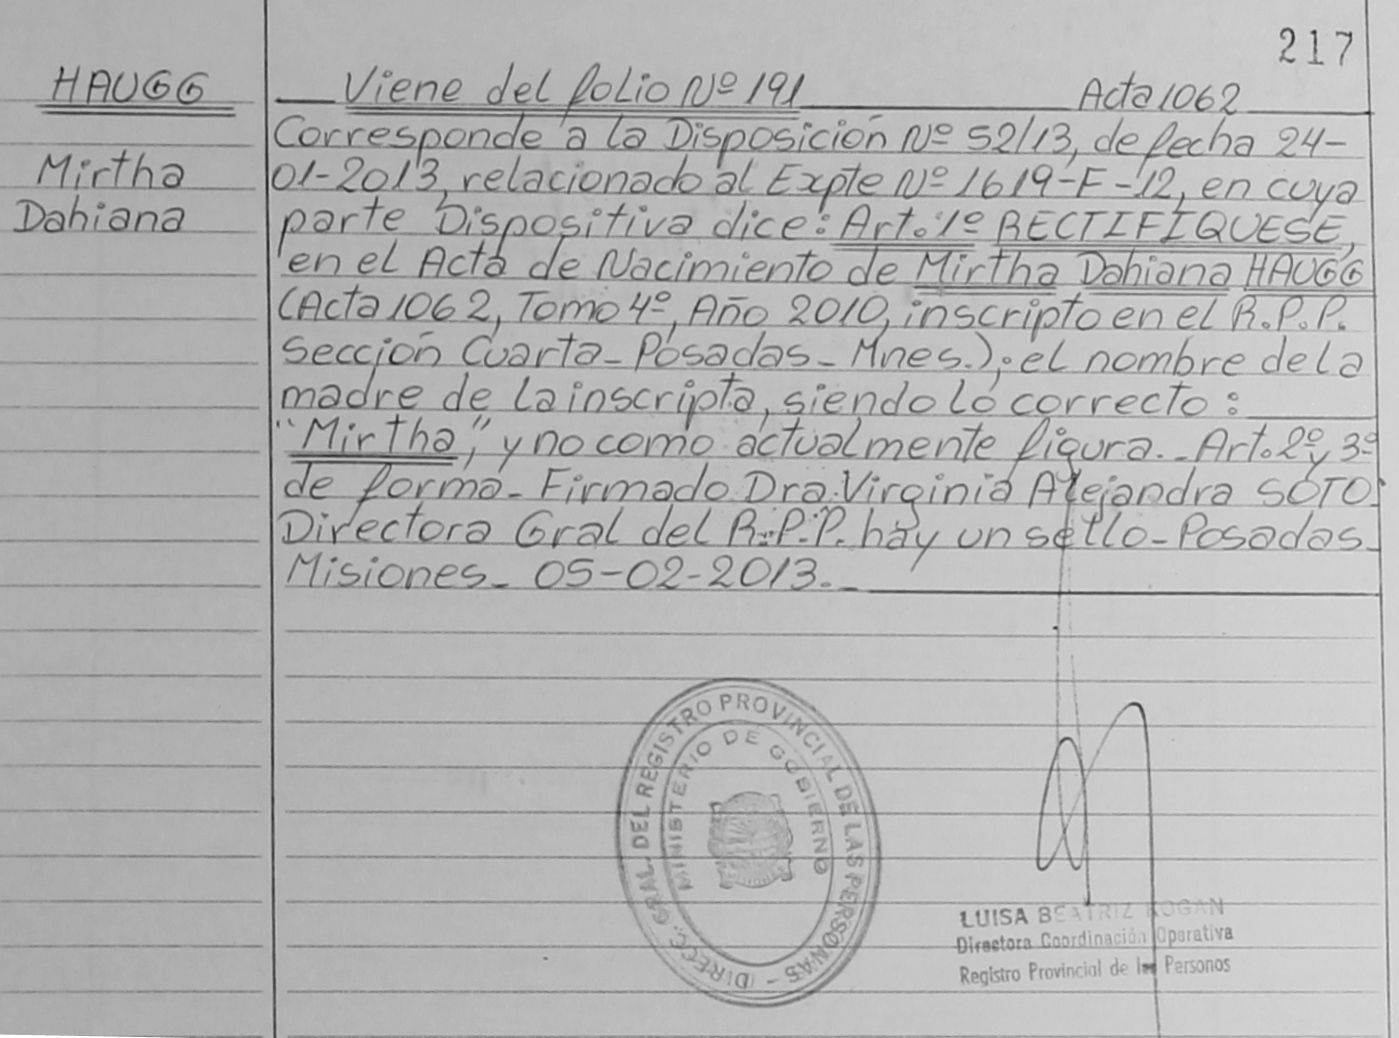 217
HAUGG
Mirtha
Dahiana
Viene del folio Nº 191 Acta 1062
Corresponde a la Disposición Nº 52/13, de fecha 24-
01-2013, relacionado al Expte Nº 1619-F-12, en cuya
parte Dispositiva dice: Art. 1º RECTIFIQUESE,
en el Acta de Nacimiento de Mirtha Dahiana HAUGG
(Acta 1062, Tomo 4º, Año 2010, inscripto en el R.P.P.
Sección Cuarta-Posadas-Mnes.); el nombre de la
madre de la inscripta, siendo lo correcto:
"Mirtha", y no como actualmente figura.- Art. 2º y 3º
de forma- Firmado Dra. Virginia Alejandra SOTO.
Directora Gral del R.P.P. hay un sello-Posadas-
Misiones- 05-02-2013.-
DIRECC. GRAL. DEL REGISTRO PROVINCIAL DE LAS PERSONAS -
MINISTERIO DE GOBIERNO
LUISA BEATRIZ KOGAN
Directora Coordinación Operativa
Registro Provincial de las Personas